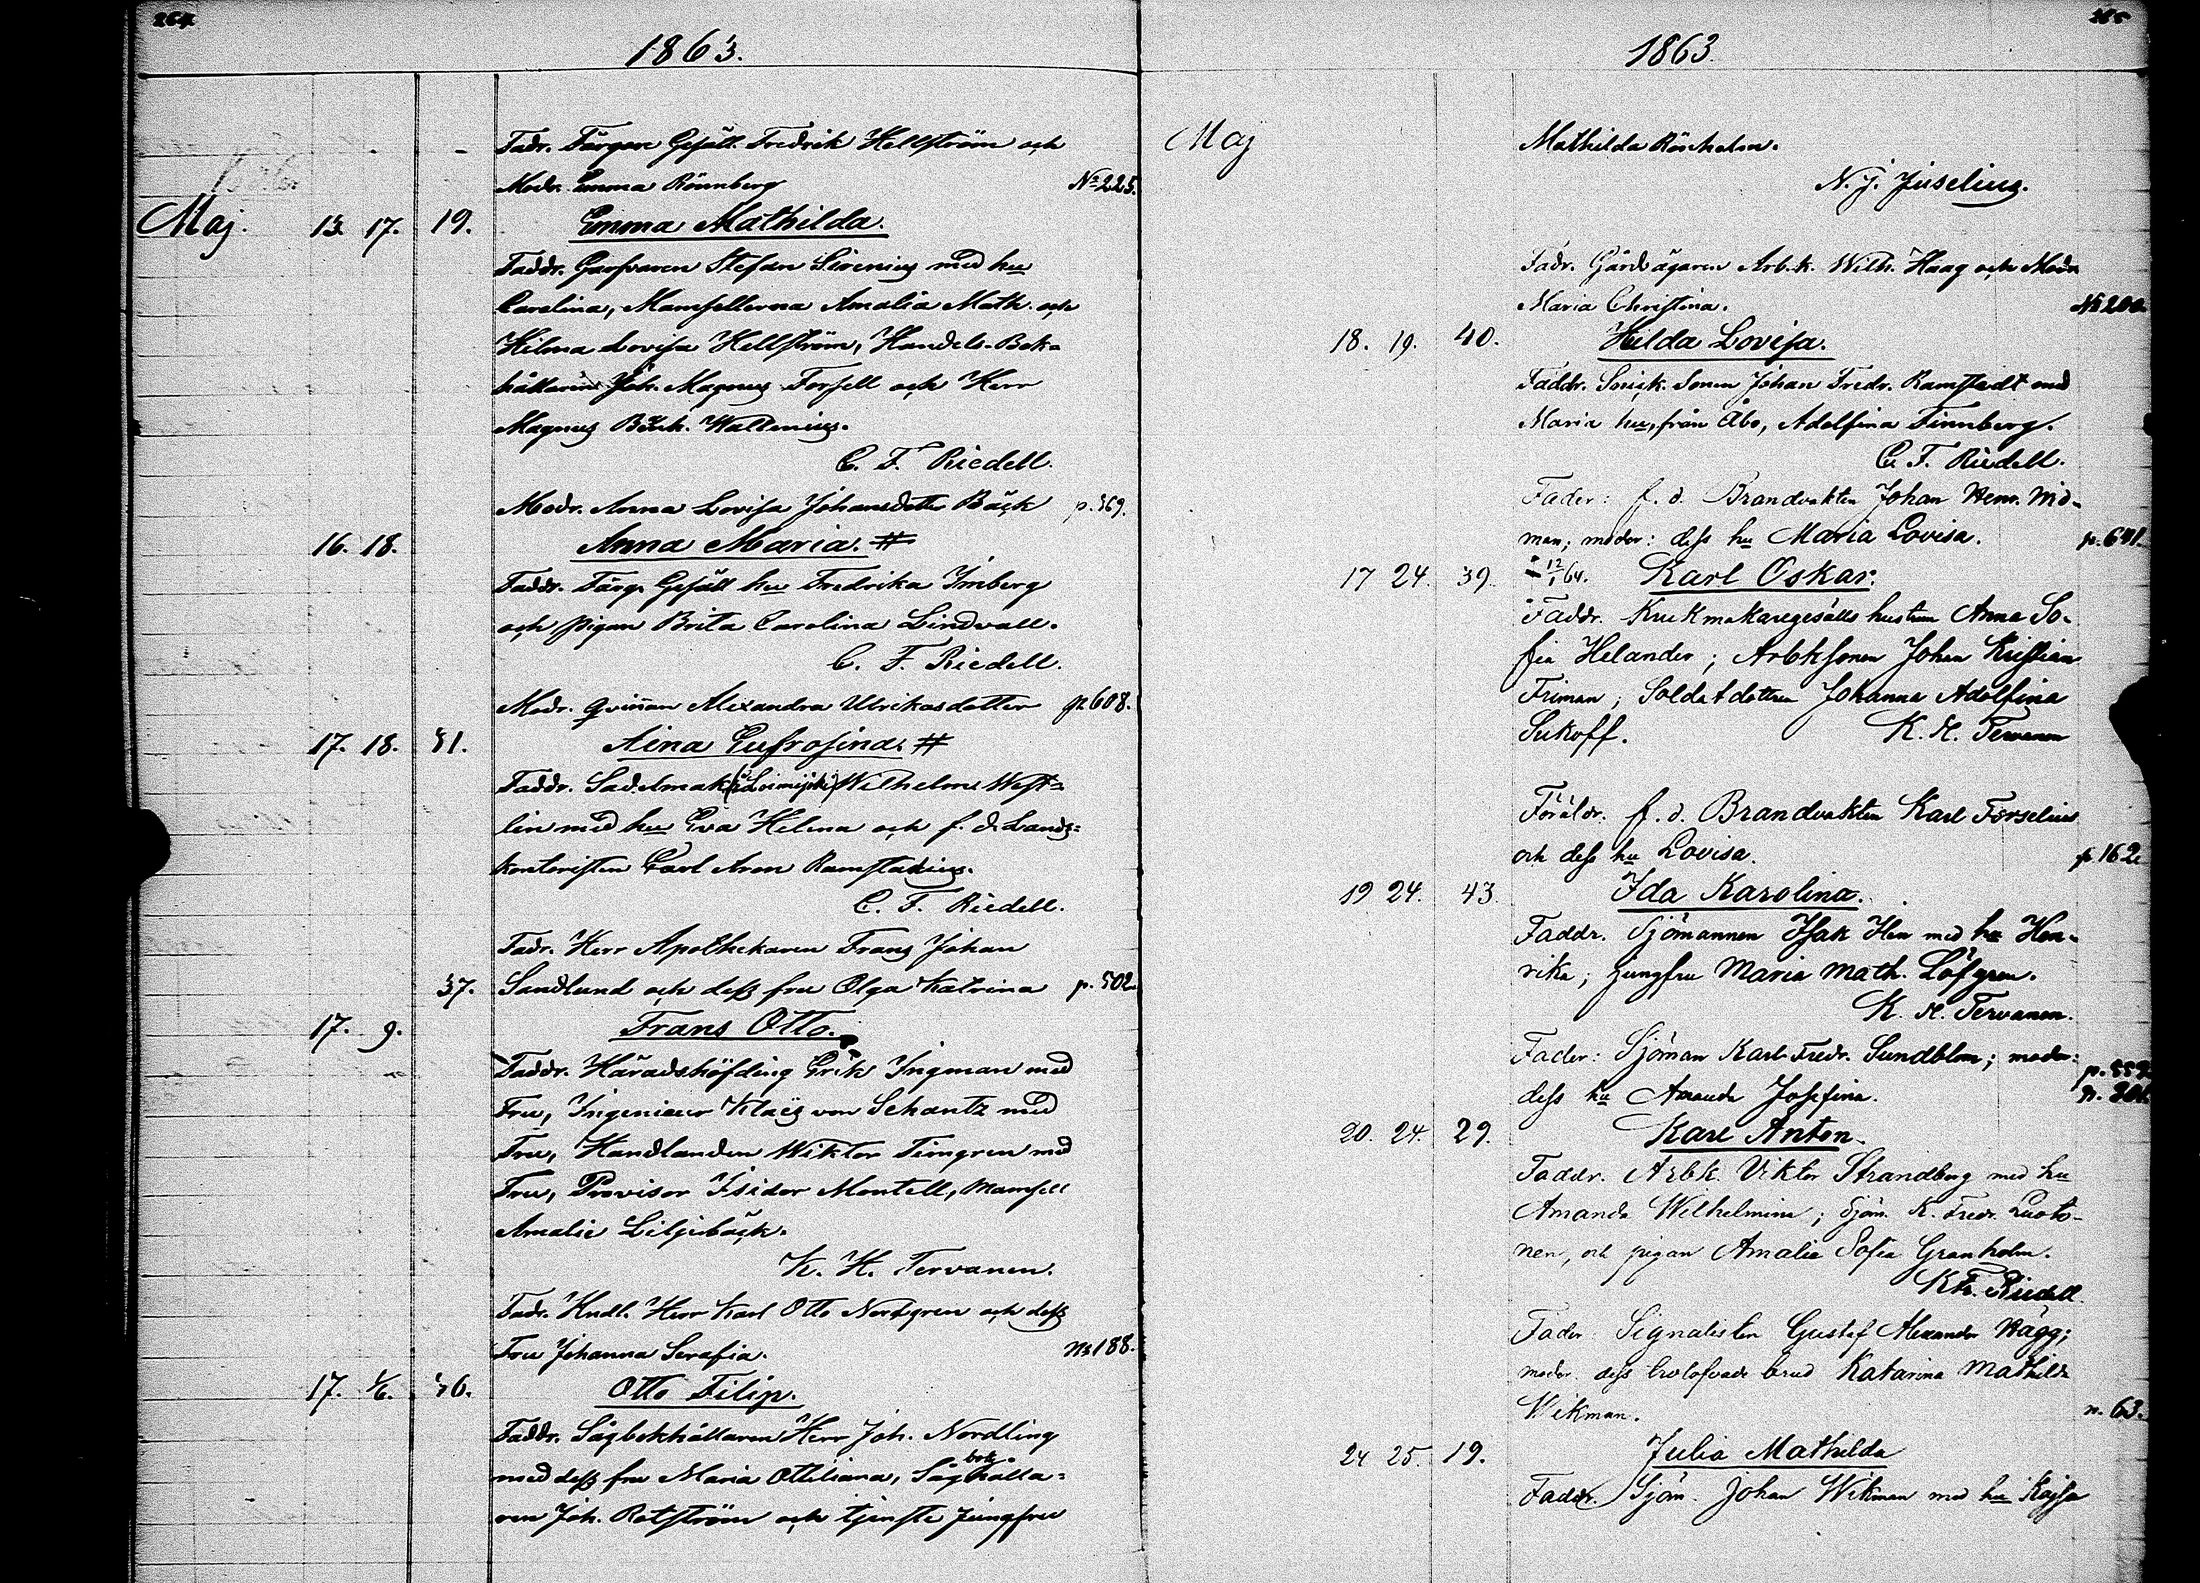 264.
1863.
Fadr. Färgare Gesäll. Fredrik Hellström och
Modr. Emma Rönnberg No 225.
Maj. 13. 17. 19. Emma Mathilda.
Faddr. Garfvaren Stefan Sirenius med hu
Carolina, Mamsellerna Amalia Math. och
Hilma Lovisa Hellström, Handels-Bok-
hållarne Joh. Magnus Forsell och Herr
Magnus Wallenius.
C. F. Riedell.
Modr. Anna Lovisa Johansdotter Bäck p. 569.
16. 18. Anna Maria. #
Faddr. Färg. Gesäll hu Fredrika Imberg
och pigan Brita Carolina Lindvall.
C. F. Riedell.
Modr. qvinnan Alexandra Ulrikasdotter p. 608.
17. 18. 31. Aina Eufrosina. #
Faddr. Sadelmak Wilhelm West-
lin med hu Eva Helena och f. d. Lands-
kontoristen Carl Aron Ramstadius.
C. F. Riedell.
Fadr. Herr Apothekaren Frans Johan
37. Sandlund och dess fru Olga Katrina p. 502.
17. 9. Frans Otto.
Faddr. Häradshöfding Erik Ingman med
Fru, Ingenieur Klaës von Schantz med
Fru, Handlanden Wiktor Timgren med
Fru, Provisor Isidor Montell, Mamsell
Amalie Liljebäck.
K. H. Tervanen.
Fadr. Hndl. Herr Karl Otto Nordgren och dess
Fru Johanna Serafia. No 188.
17. 1/6. 36. Otto Filip.
Faddr. Sågbokhållaren Herr Joh. Nordling
med dess fru Maria Ottiliana, Sågbokhålla-
ren Joh. Rotström och tjenste jungfru
265
1863.
Maj Mathilda Rönholm.
N. J. Juselius.
Fadr. Gårdsägaren Arb.k. Wilh. Haag och Modr
Maria Christina. No 200.
18. 19. 40. Hilda Lovisa.
Faddr. Snick. Sonen Johan Fredr. Ramstedt med
Maria hu, från Åbo, Adolfina Finnberg.
C. F. Riedell.
Fader: f. d. Brandvakten Johan Henr. Wid-
man; moder: dess hu Maria Lovisa. p. 641.
17 24. 39. 12/1 64. Karl Oskar.
Faddr. Krukmakaregesälls hustrun Anna So-
fia Helander; Arbksonen Johan Kristian
Friman; Soldatdottren Johanna Adolfina
Sukoff. K. H. Tervanen
Föräldr. f. d. Brandvakten Karl Forselius
och dess hu Lovisa. p. 162.
19 24. 43. Ida Karolina.
Faddr. Sjömannen Isak Hen med hu Hen-
rika; jungfru Maria Math. Löfgren.
K. H. Tervanen.
Fader: Sjöman Karl Fredr. Sundblom; moder: p. 552
dess hu Amanda Josefina.
20. 24. 29. Karl Anton.
Faddr. Arbk. Viktor Strandberg med hu
Amanda Wilhelmina; Sjöm. K. Fredr. Luoto-
nen, och pigan Amalia Sofia Granholm.
Riedell
Fader Signalisten Gustaf Alexander Hägg;
moder dess trolofvade brud Katarina Mathilda
Wikman. n. 63.
24 25. 19. Julia Mathilda
Faddr. Sjöm. Johan Wikman med hu Kajsa